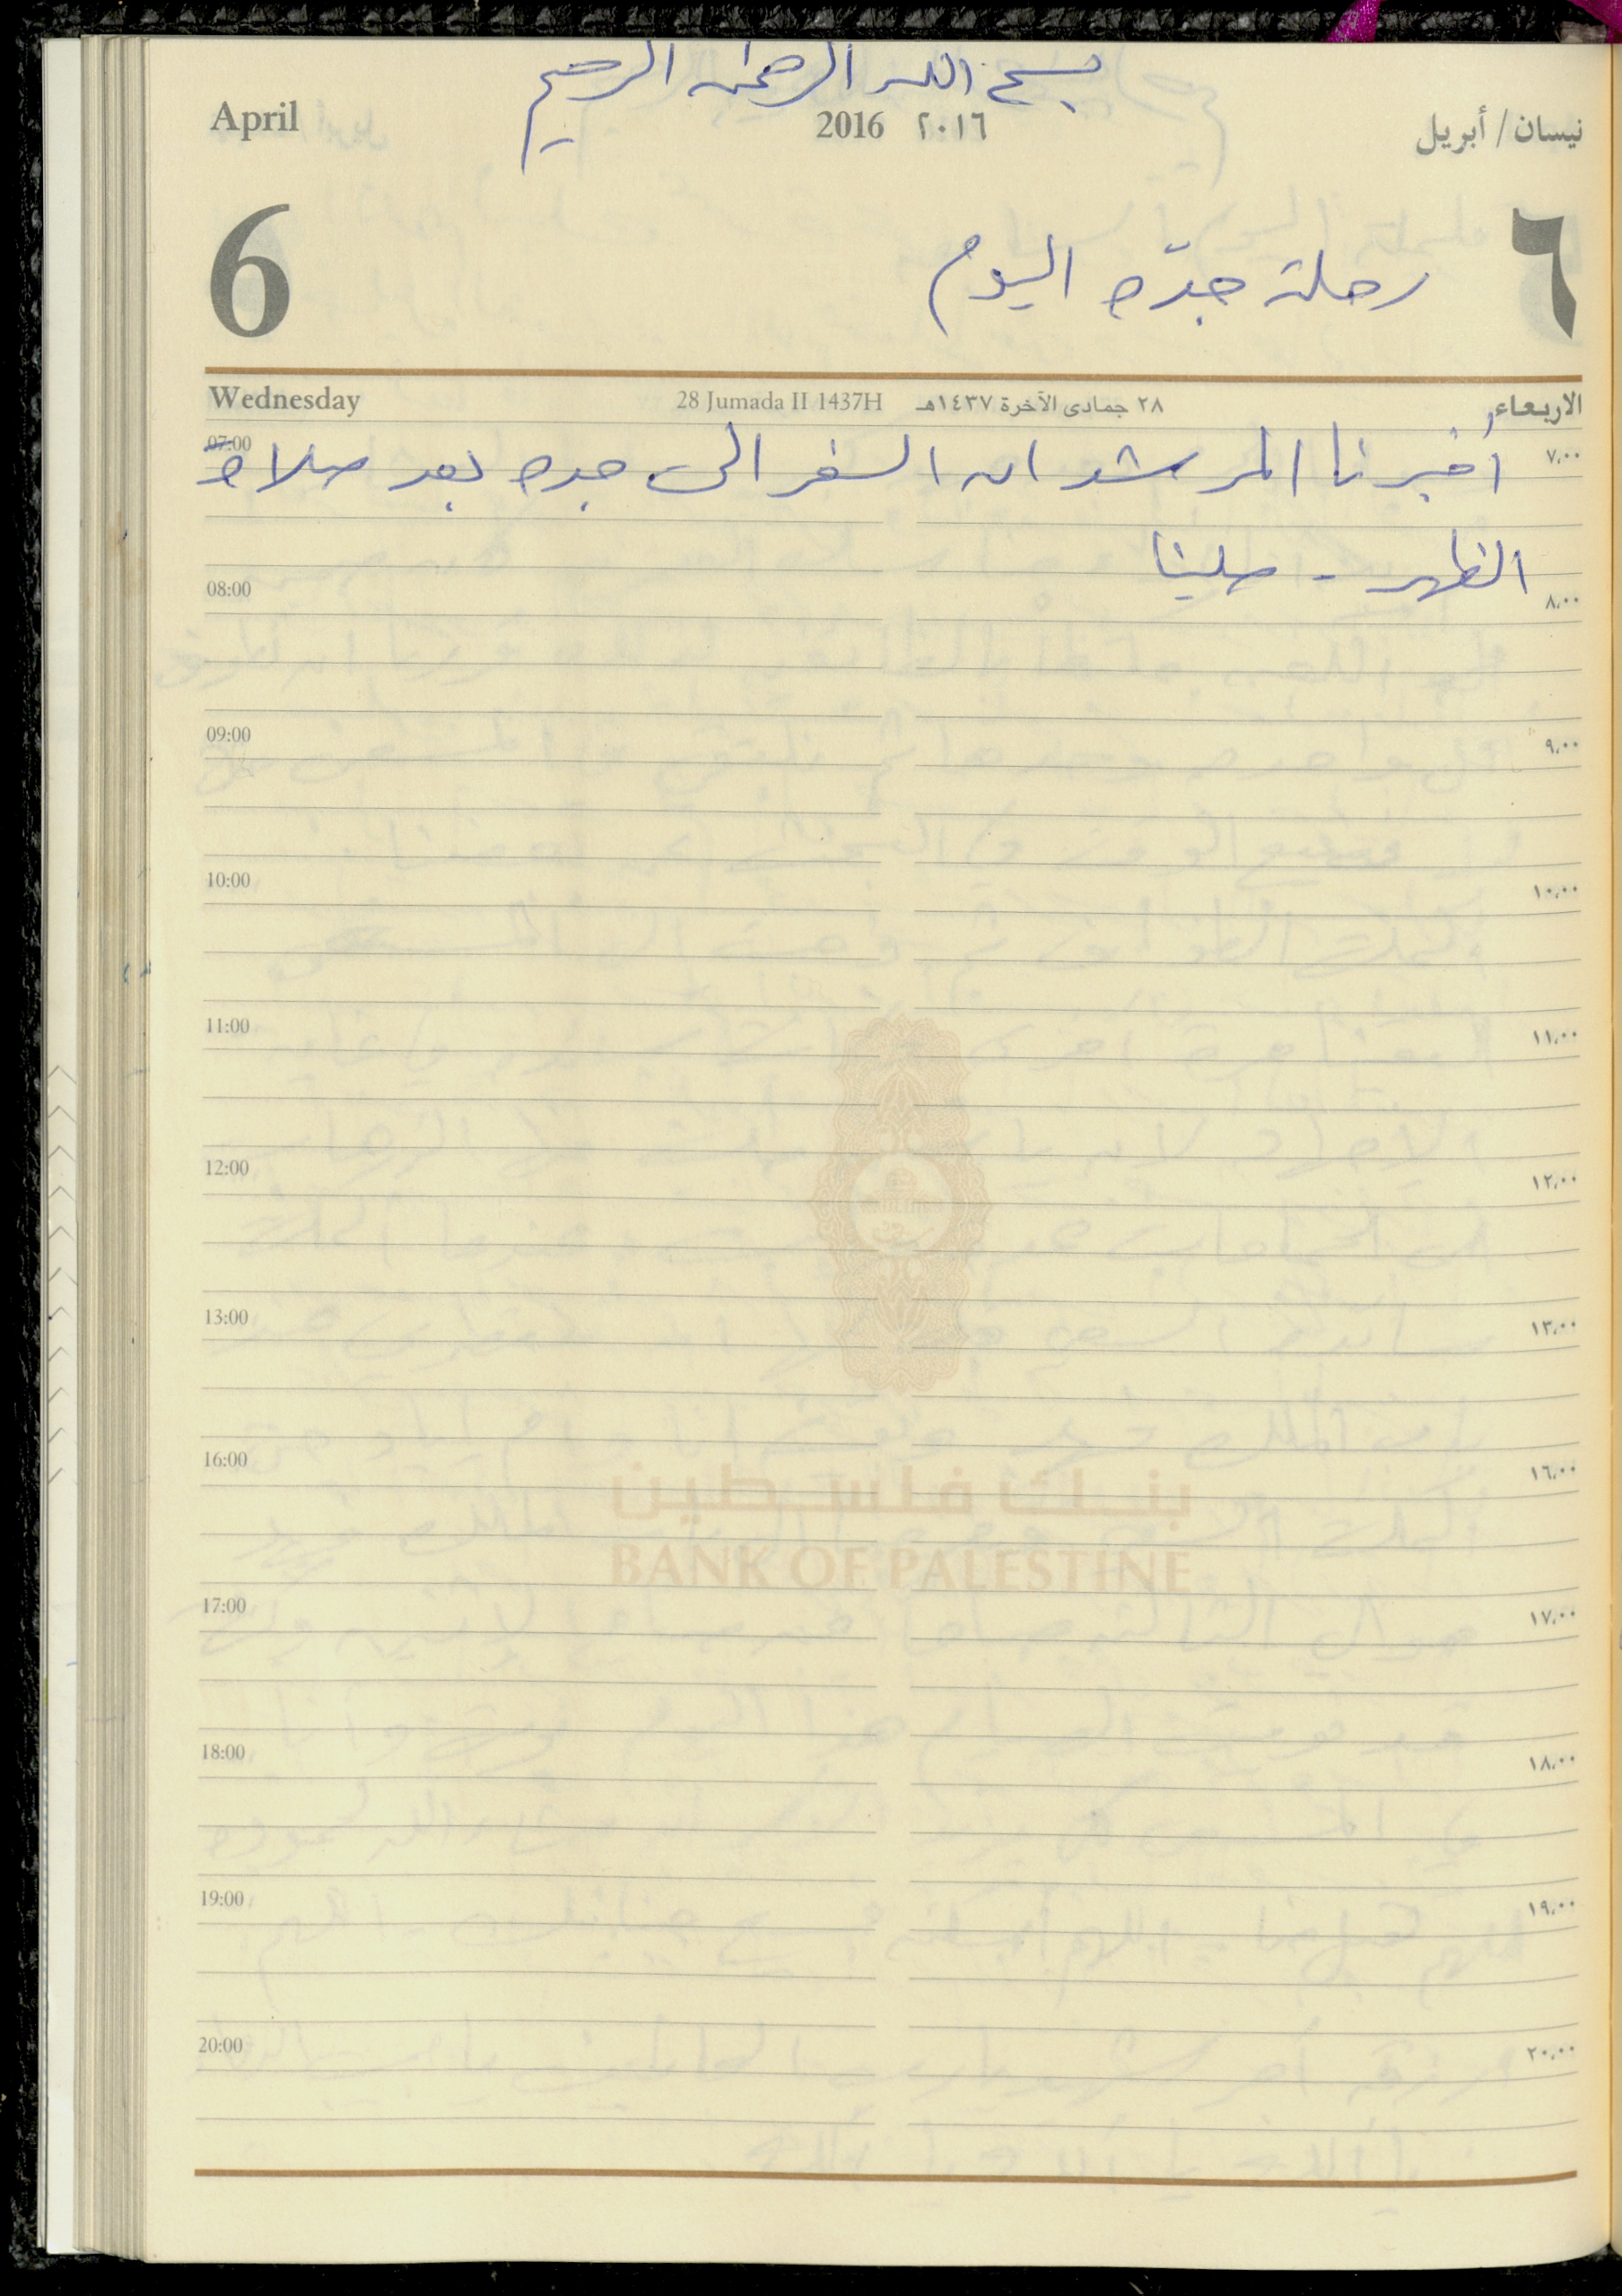 بسم الله الرحمن الرحيم
April 2016 ٢٠١٦ نيسان / أبريل
6 ٦
رحلة جدّه اليوم
Wednesday 28 Jumada II 1437H ٢٨ جمادى الآخرة ١٤٣٧هـ الاربعاء
07:00 ٧,٠٠
أخبرنا المرشد ان السفر الى جده بعد صلاة
الظهر - صلينا
08:00 ٨,٠٠
09:00 ٩,٠٠
10:00 ١٠,٠٠
11:00 ١١,٠٠
12:00 ١٢,٠٠
13:00 ١٣,٠٠
16:00 ١٦,٠٠
بنك فلسطين
BANK OF PALESTINE
17:00 ١٧,٠٠
18:00 ١٨,٠٠
19:00 ١٩,٠٠
20:00 ٢٠,٠٠